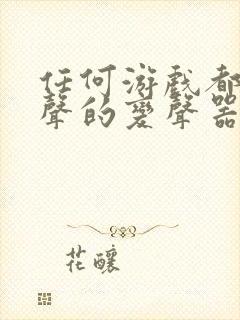 任何游戲都
聲的變聲器
花釀